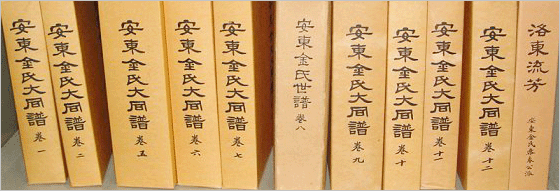 安東金氏大同譜 卷一
安東金氏大同譜 卷二
安東金氏大同譜 卷五
安東金氏大同譜 卷六
安東金氏大同譜 卷七
安東金氏世譜 卷八
安東金氏大同譜 卷九
安東金氏大同譜 卷十
安東金氏大同譜 卷十一
安東金氏大同譜 卷十二
洛東流芳
安東金氏